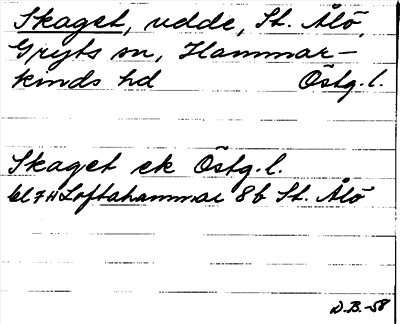 Skaget, udde, St. Ålö,
Gryts sn, Hammar-
kinds hd Östg.l.
Skaget ek Östg.l.
bl 7H Loftahammar 8b St. Ålö
D.B.-58